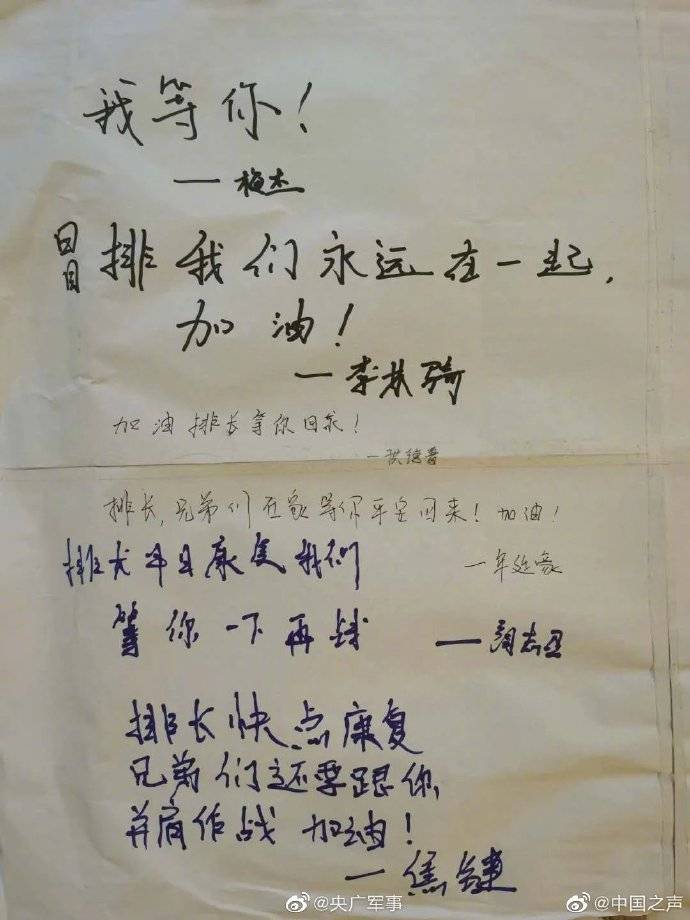 我等你！
—梅杰
冒排我们永远在一起，
加油！
—李林骑
加油排长等你回来！
排长，兄弟们在家等你平安回来！加油！
排长早日康复我们
—年廷豪
等你一下再战
排长快点康复
兄弟们还要跟你
并肩作战 加油！
—焦健
@央广军事 @中国之声